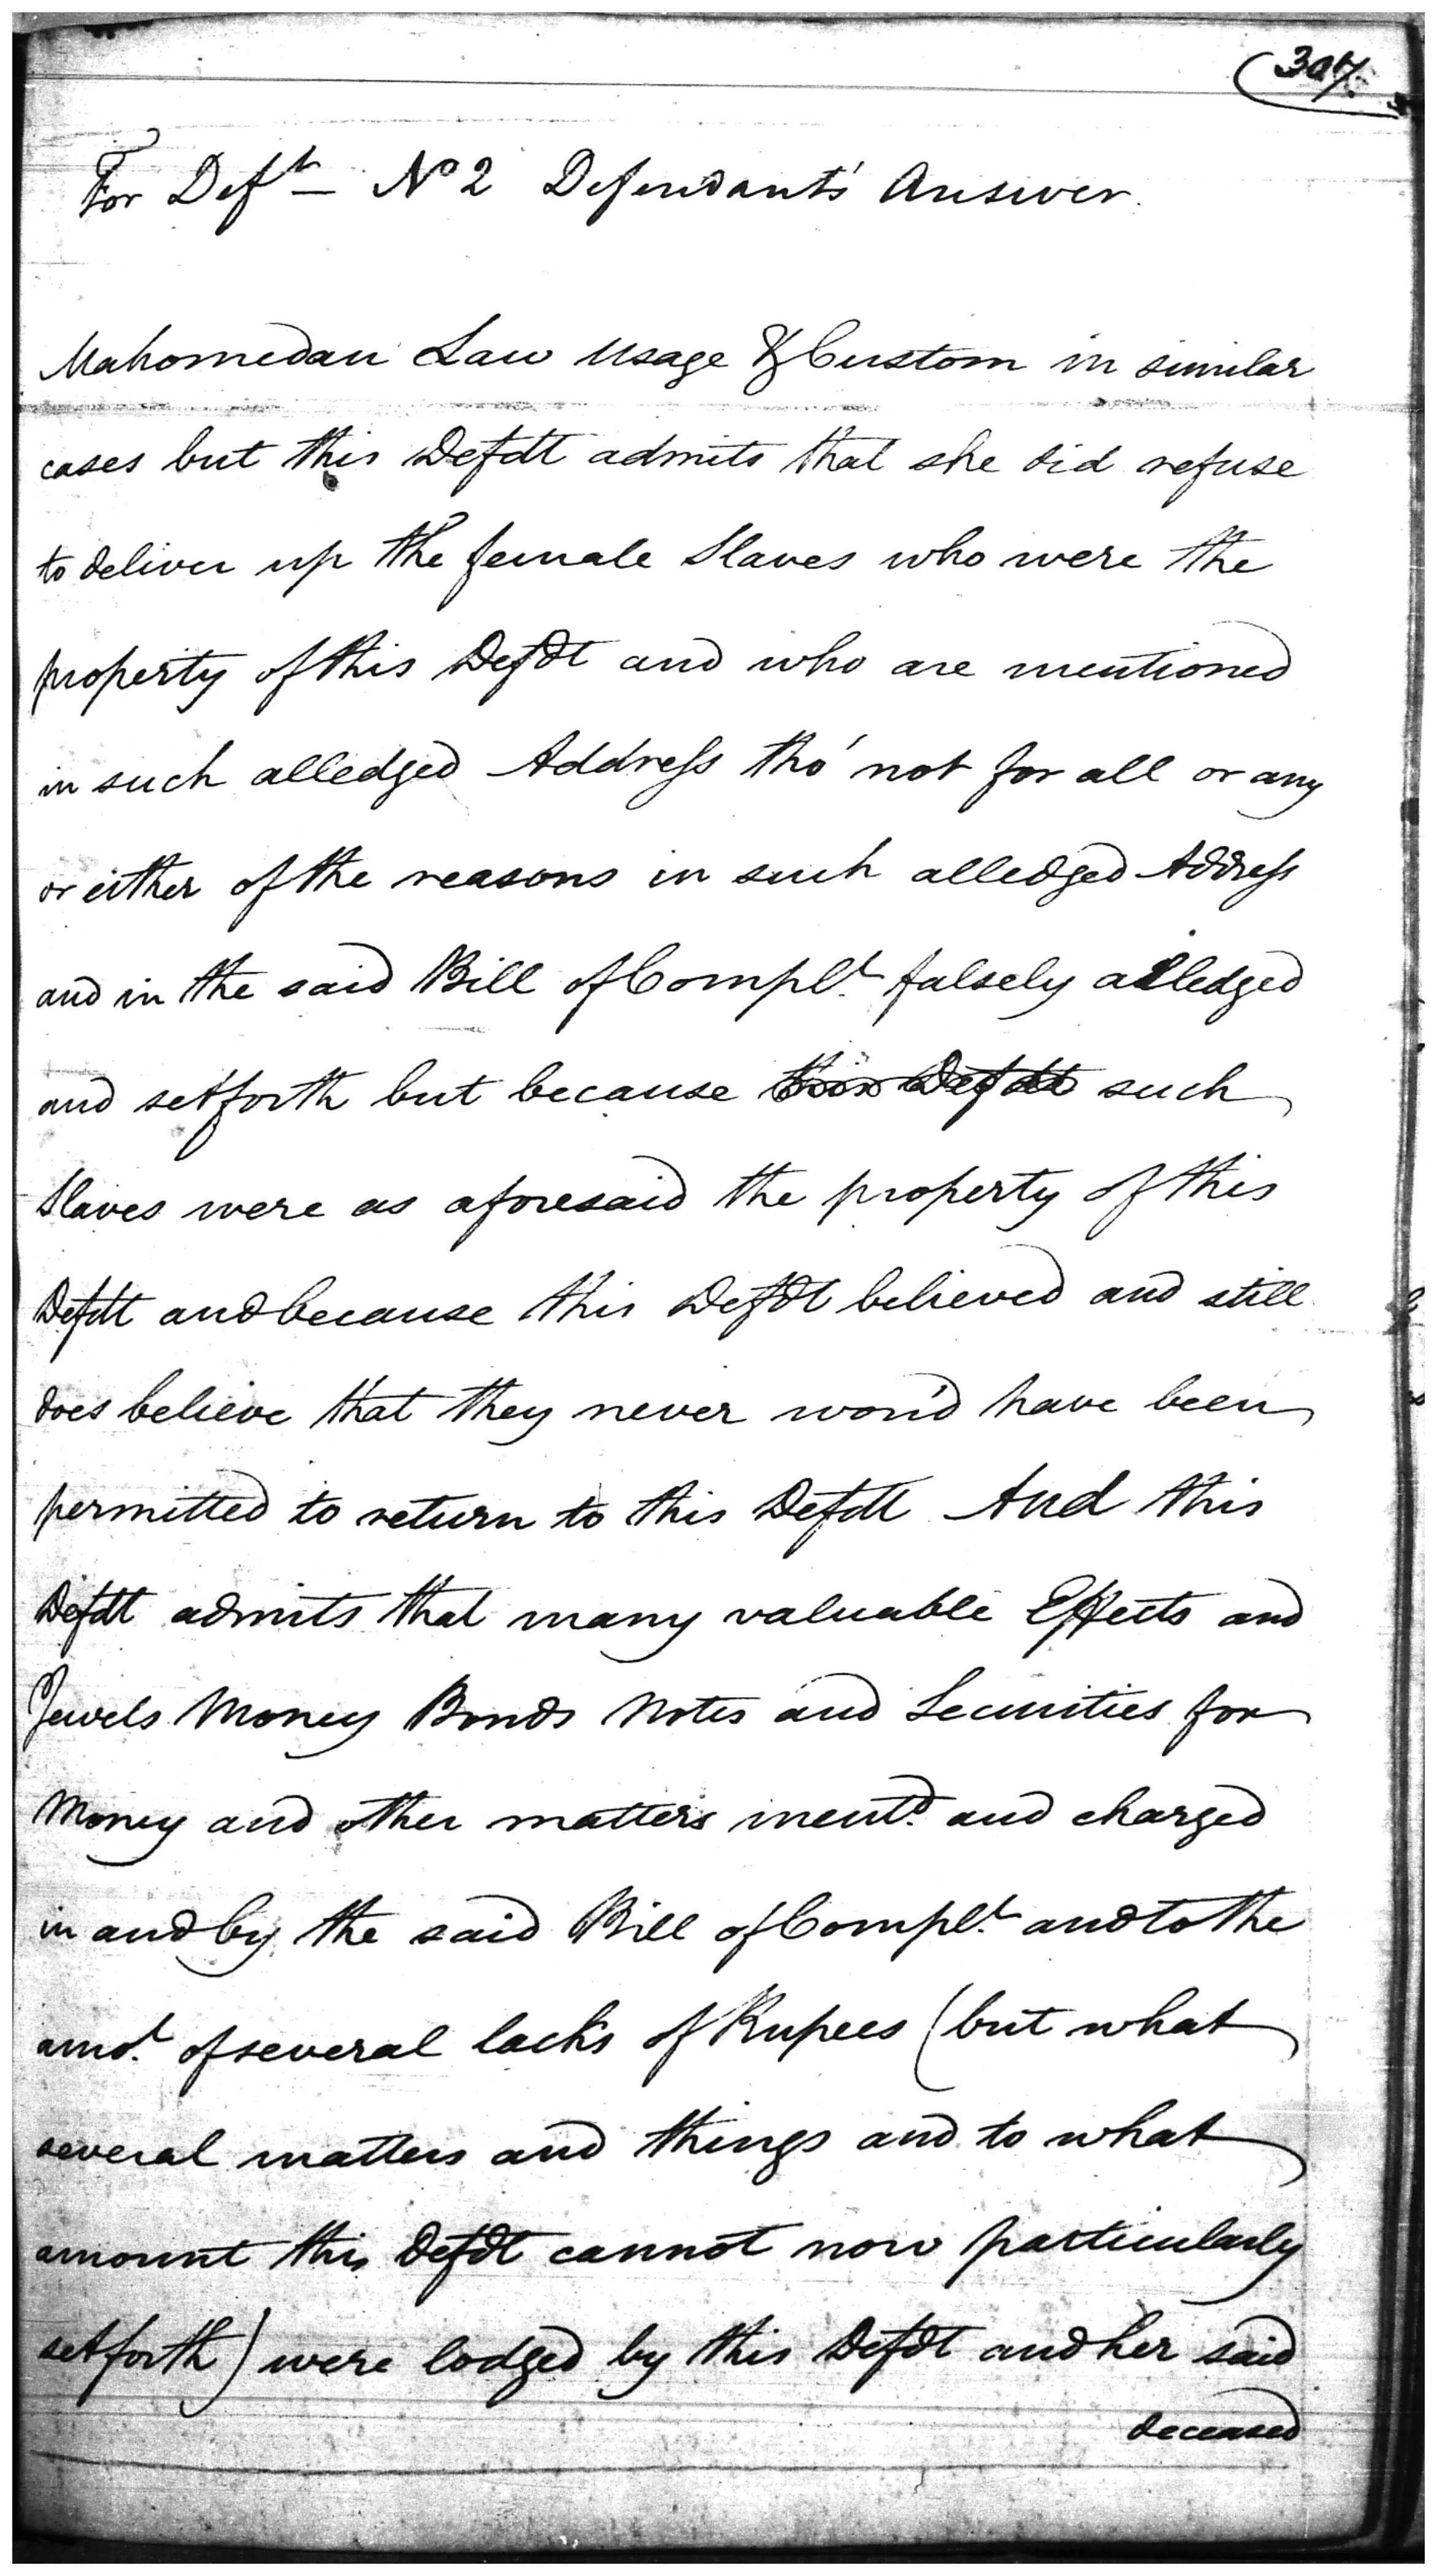 For Deft. No 2 Defendants' Answer.
Mahomedan Law Usage & Custom in similar
cases but this Defdt admits that she did refuse
to deliver up the female Slaves who were the
property of this Defdt and who are mentioned
in such alledged Address tho' not for all or any
or either of the reasons in such alledged Address
and in the said Bill of Complt. falsely alledged
and setforth but because this Defdt such
Slaves were as aforesaid the property of this
Defdt and because this Defdt believed and still
does believe that they never wou'd have been
permitted to return to this Defdt And this
Defdt admits that many valuable Effects and
Jewels Money Bonds Notes and Securities for
Money and other matters mentd. and charged
in and by the said Bill of Complt. and to the
amot. of several lacks of Rupees (but what
several matters and things and to what
amount this Defdt cannot now particularly
setforth) were lodged by this Defdt and her said
deceased